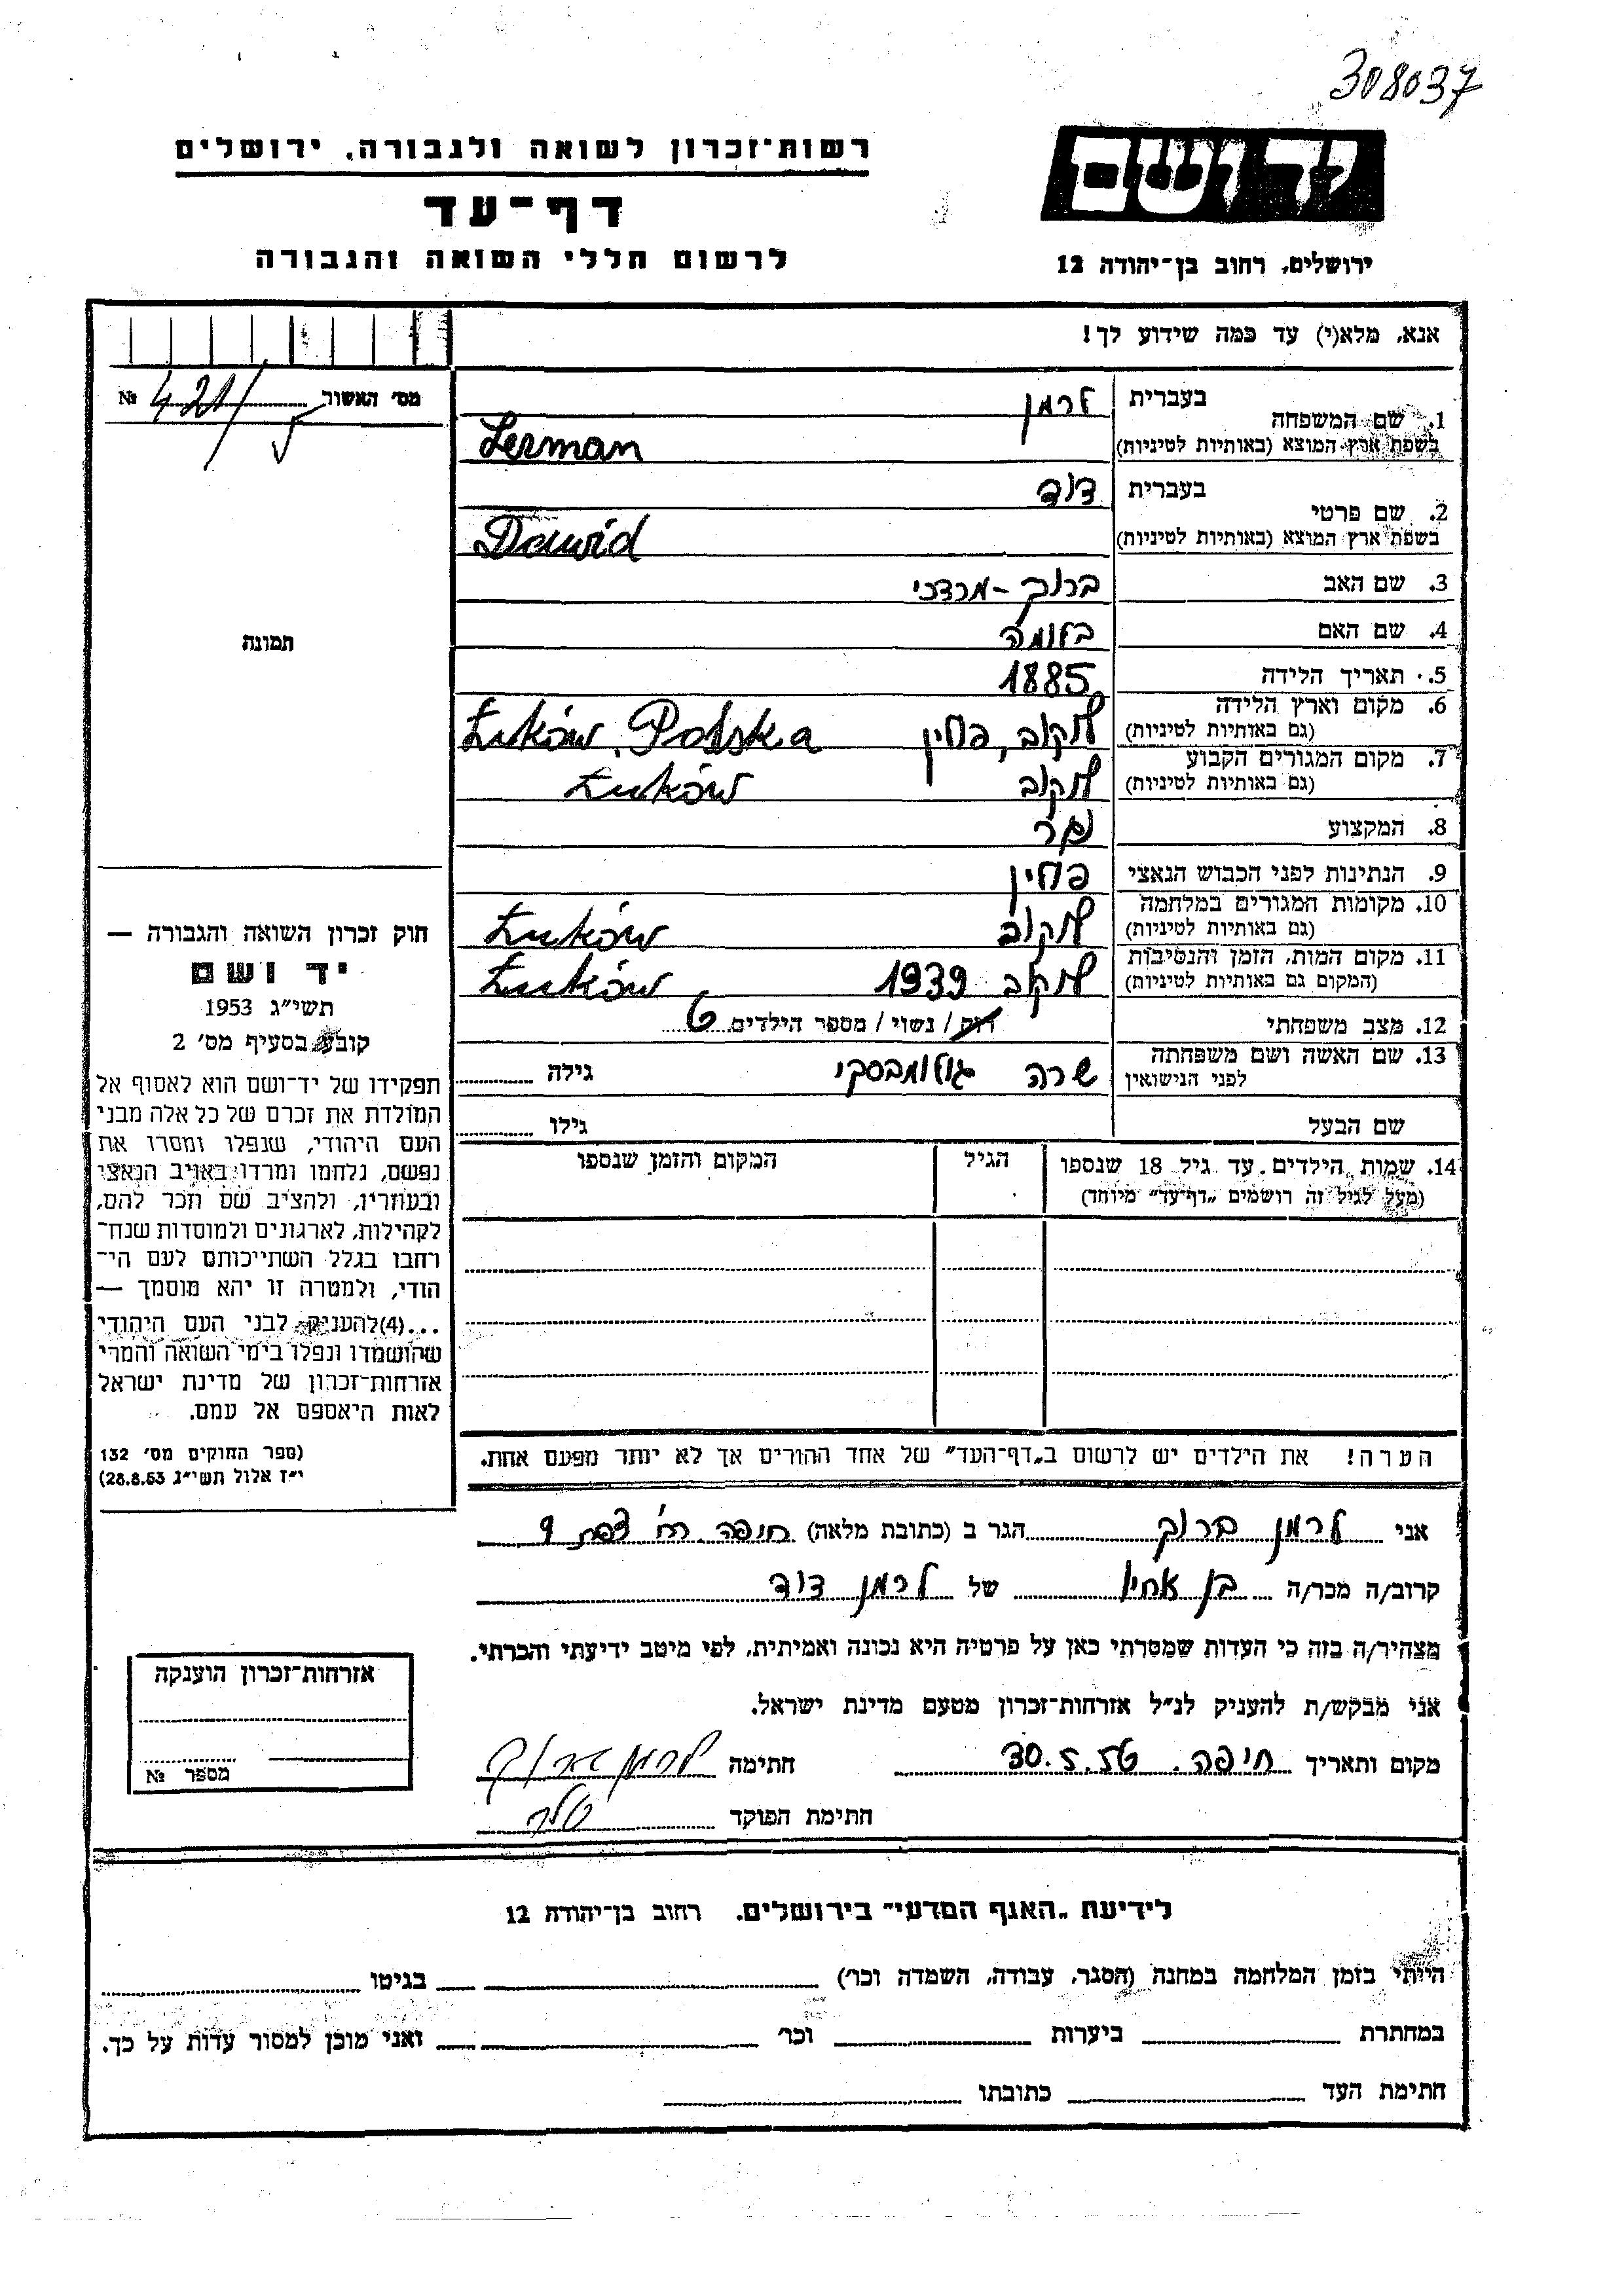 308037
רשות־זכרון לשואה ולגבורה, ירושלים
יד ושם
דף־עד
לרשום חללי השואה והגבורה
ירושלים, רחוב בן־יהודה 12
אנא, מלא(י) עד כמה שידוע לך!
מס' האשור 421 №
1. שם המשפחה בעברית לרמן
בשפת ארץ המוצא (באותיות לטיניות) Lerman
2. שם פרטי בעברית דוד
בשפת ארץ המוצא (באותיות לטיניות) Dawid
3. שם האב ברוך-מרדכי
4. שם האם בלומה
5. תאריך הלידה 1885
6. מקום וארץ הלידה
(גם באותיות לטיניות) לוקוב, פולין Łuków, Polska
7. מקום המגורים הקבוע
(גם באותיות לטיניות) לוקוב Łuków
8. המקצוע
9. הנתינות לפני הכבוש הנאצי פולין
10. מקומות המגורים במלחמה
(גם באותיות לטיניות) לוקוב Łuków
11. מקום המות, הזמן והנסיבות
(המקום גם באותיות לטיניות) לוקוב 1939 Łuków
12. מצב משפחתי רוק / נשוי / מספר הילדים 6
13. שם האשה ושם משפחתה
לפני הנישואין שרה גולומבסקי גילה
שם הבעל גילו
14. שמות הילדים עד גיל 18 שנספו הגיל המקום והזמן שנספו
(מעל לגיל זה רושמים "דף־עד" מיוחד)
הערה! את הילדים יש לרשום ב"דף־העד" של אחד ההורים אך לא יותר מפעם אחת.
תמונה
חוק זכרון השואה והגבורה —
יד ושם
תשי"ג 1953
קובע בסעיף מס' 2
תפקידו של יד־ושם הוא לאסוף אל
המולדת את זכרם של כל אלה מבני
העם היהודי, שנפלו ומסרו את
נפשם, נלחמו ומרדו באויב הנאצי
ובעוזריו, ולהציב שם וזכר להם,
לקהילות, לארגונים ולמוסדות שנח־
רבו בגלל השתייכותם לעם הי־
הודי, ולמטרה זו יהא מוסמך —
...(4) להעניק לבני העם היהודי
שהושמדו ונפלו בימי השואה והמרי
אזרחות־זכרון של מדינת ישראל
לאות היאספם אל עמם.
(ספר החוקים מס' 132
י"ז אלול תשי"ג 28.8.53)
אני לרמן ברוך הגר ב (כתובת מלאה) חיפה רח' צפת 9
קרוב/ה מכר/ה בן אחיו של לרמן דוד
מצהיר/ה בזה כי העדות שמסרתי כאן על פרטיה היא נכונה ואמיתית, לפי מיטב ידיעתי והכרתי.
אני מבקש/ת להעניק לנ"ל אזרחות־זכרון מטעם מדינת ישראל.
מקום ותאריך חיפה. 30.5.56 חתימה לרמן ברוך
חתימת הפוקד
אזרחות־זכרון הוענקה
מספר №
לידיעת "האגף המדעי" בירושלים, רחוב בן־יהודה 12
הייתי בזמן המלחמה במחנה (הסגר, עבודה, השמדה וכר') בגיטו
במחתרת ביערות וכר' ואני מוכן למסור עדות על כך.
חתימת העד כתובתו